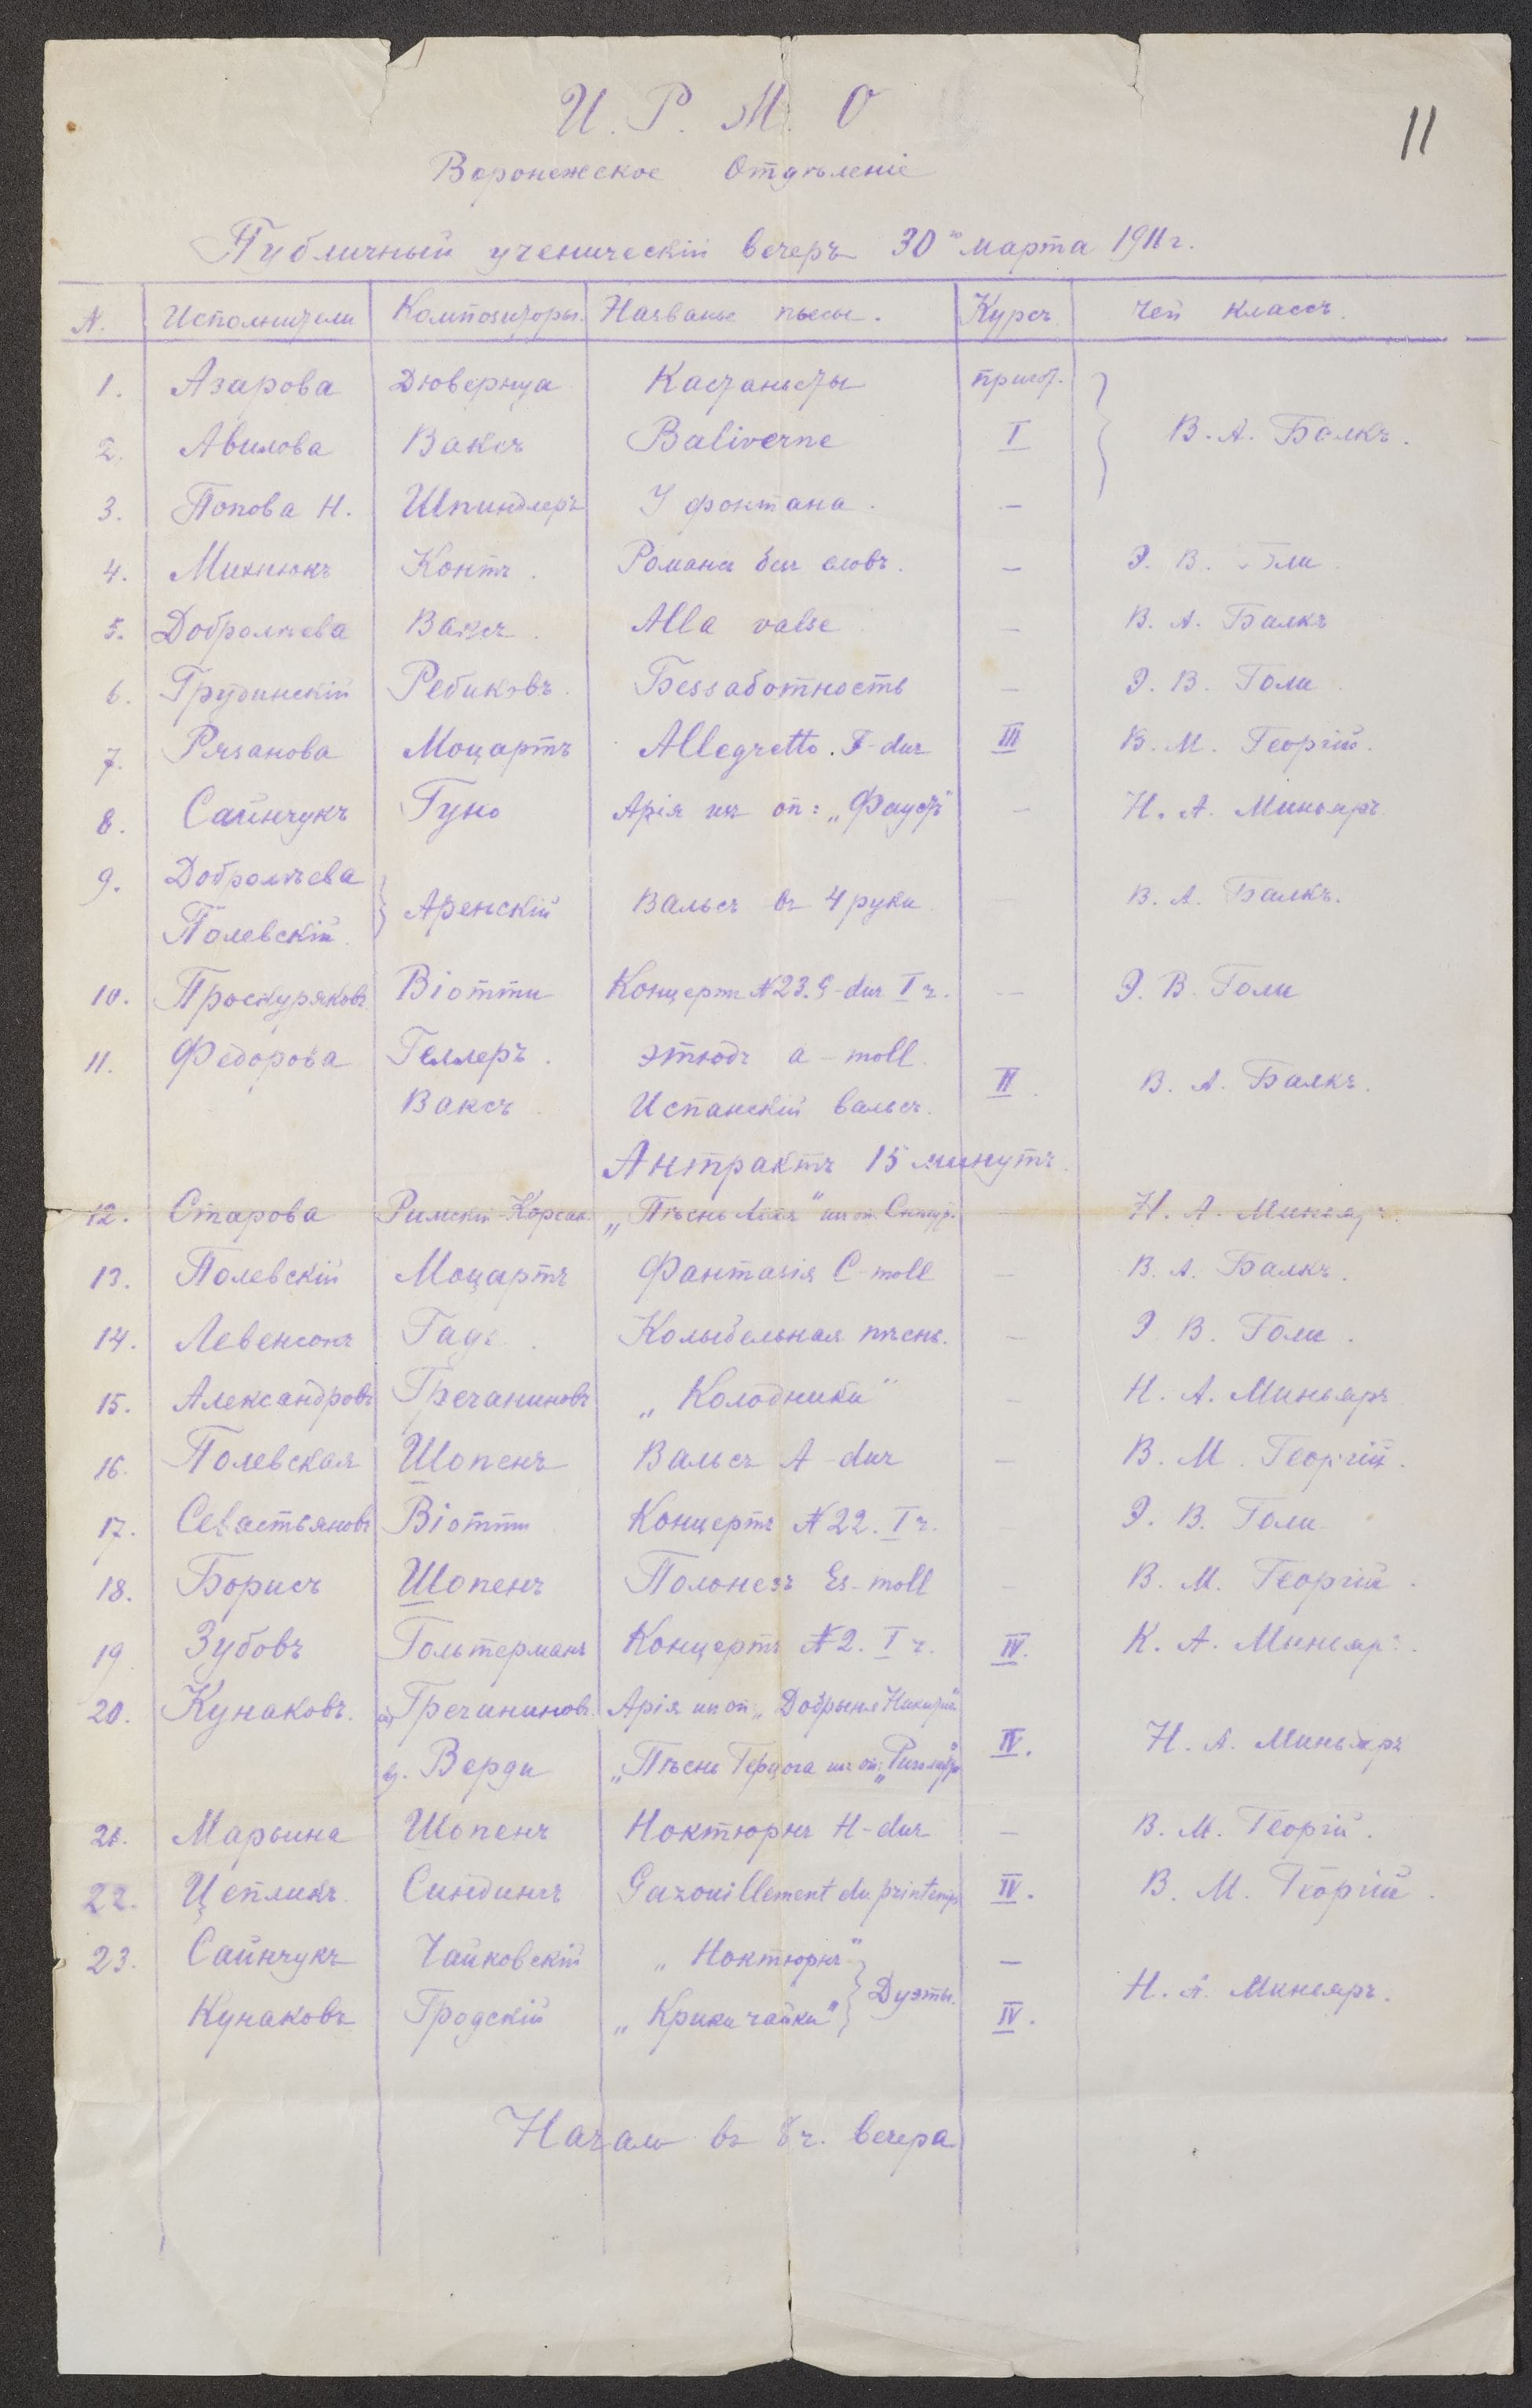 И. Р. М. О
11
Воронежское Отдѣленіе
Публичный ученическій вечеръ 30го марта 1911 г.
№. Исполнители Композиторы. Названье пьесы. Курсъ Чей классъ.
1. Азарова Дювернуа Кастаньеты пригот.
2. Авилова Ваксъ Baliverne I В. А. Балкъ.
3. Попова Н. Шпиндлеръ У фонтана. —
4. Михнюкъ Контъ. Романсъ безъ словъ. — Э. В.
5. Добролѣева Ваксъ. Alla valse — В. А. Балкъ
6. Грудинскій Ребиковъ. Беззаботность — Э. В. Голи
7. Рязанова Моцартъ Allegretto. F-dur III В. М. Георгій.
8. Сайнчукъ Гуно Арія изъ оп: „Фаустъ" — Н. А. Миньяръ
9. Добролѣева
Полевскій. Аренскій Вальсъ въ 4 руки. — В. А. Балкъ.
10. Проскуряковъ Віотти Концертъ №23. G-dur I ч. — Э. В. Голи
11. Федорова Геллеръ. Этюдъ a-moll.
Ваксъ. Испанскій вальсъ. II. В. А. Балкъ.
Антрактъ 15 минутъ.
12. Старова Римскій-Корсак. „Пѣснь Леля" изъ оп. Снѣгур. — Н. А. Миньяръ.
13. Полевскій Моцартъ Фантазія C-moll — В. А. Балкъ.
14. Левенсонъ Гаде. Колыбельная пѣснь. — Э. В. Голи.
15. Александровъ Гречаниновъ „Колодники" — Н. А. Миньяръ
16. Полевская Шопенъ Вальсъ A-dur — В. М. Георгій.
17. Севастьяновъ Віотти Концертъ №22. I ч. — Э. В. Голи
18. Борисъ Шопенъ Полонезъ Es-moll — В. М. Георгій.
19. Зубовъ Гольтерманъ Концертъ №2. I ч. IV. К. А. Миньяръ.
20. Кунаковъ. а) Гречаниновъ. Арія изъ оп „Добрыня Никитичъ"
Верди „Пѣснь Герцога изъ оп: „Риголетто" IV. Н. А. Миньяръ
21. Марьина Шопенъ Ноктюрнъ H-dur — В. М. Георгій.
22. Цепликъ. Синдингъ Gazouillement du printemps IV. В. М. Георгій.
23. Сайнчукъ Чайковскій „Ноктюрнъ" —
Дуэты. Н. А. Миньяръ.
Кунаковъ Гродскій „Крики чайки" IV.
Начало въ 8 ч. вечера